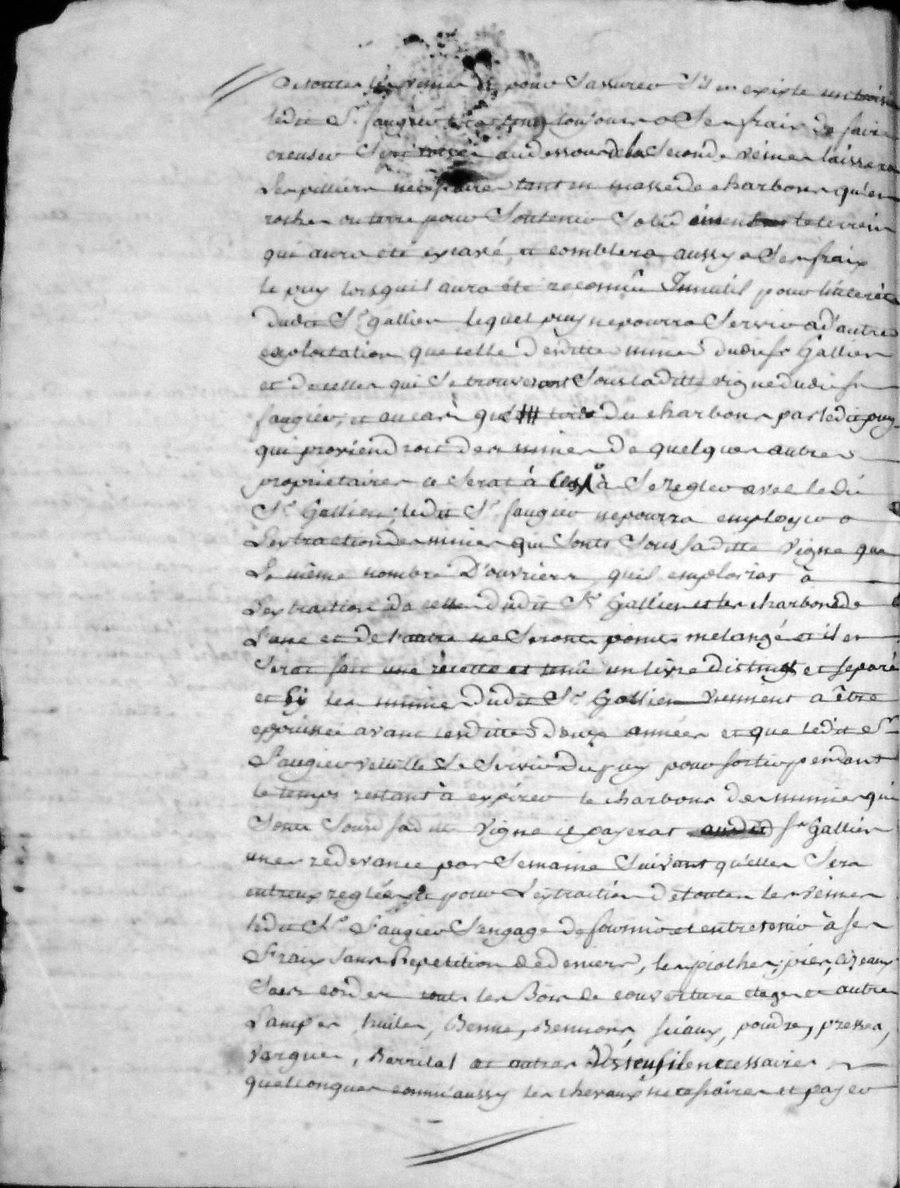 De toutes les veines et pour s'assurer s'il en existe un trois
ledit Sr. faugier toujours a Ses frais de faire
creuser au dessous de la Seconde veine laissera
Les pilliers nessesaires tant en masse de charbons qu'en
roche ou terre pour Soutenir le terrein
qui aura été excavé, et comblera aussy a Ses frais
le puy lorsquil aura été reconnû Innutil pour l'interêt
dudit Sr. gallien lequel puy ne pourra Servir a d'autre
exploitation que celle desditte mines dudit Sr Gallien
et de celles qui Se trouveront Sous laditte vigne dudit Sr
faugier, et au cas que du charbons par ledit puy
qui proviendroit des mines de quelques autres
proprietaires ce Serat à à Se regler avec ledit
Sr. Gallien; ledit Sr. faugier ne pourra employer a
L'extraction des mines qui Sont Sous Saditte vigne que
Le même nombre D'ouvriers quil employras à
L'extraction de celles dudit Sr. Gallien et les charbons de
L'une et de l'autre ne Seront points melangé et il en
Serat fait une recette et tenû un livre distingt et separé
et Sy les mines dudit Sr. Gallien viennent a être
eppuisée avant lesdittes Douze années et que ledit Sr
Faugier veuille Se Servir du puy pour sortir pendant
le temps restant à expirer le charbons des mines qui
Sont Sous Saditte vigne il payerat audit Sr Gallien
une redevance par Semaine Suivant qu'elle Sera
entreux reglée et pour L'extraction de toutes les veines
ledit Sr. Faugier S'engage de fournir et entretenir à ses
Frais Sans Repetition de deniers, les pioches, pics, cizeaux
Sacs cordes touts les Bois de couverture étages et autres
Lampes huiles, Bennes, Bennons, Siaux, poudre, presses,
Vargues, Barrilat et autres Ustensiles nessaires
quelconques comm'aussy les chevaux necessaires et payer